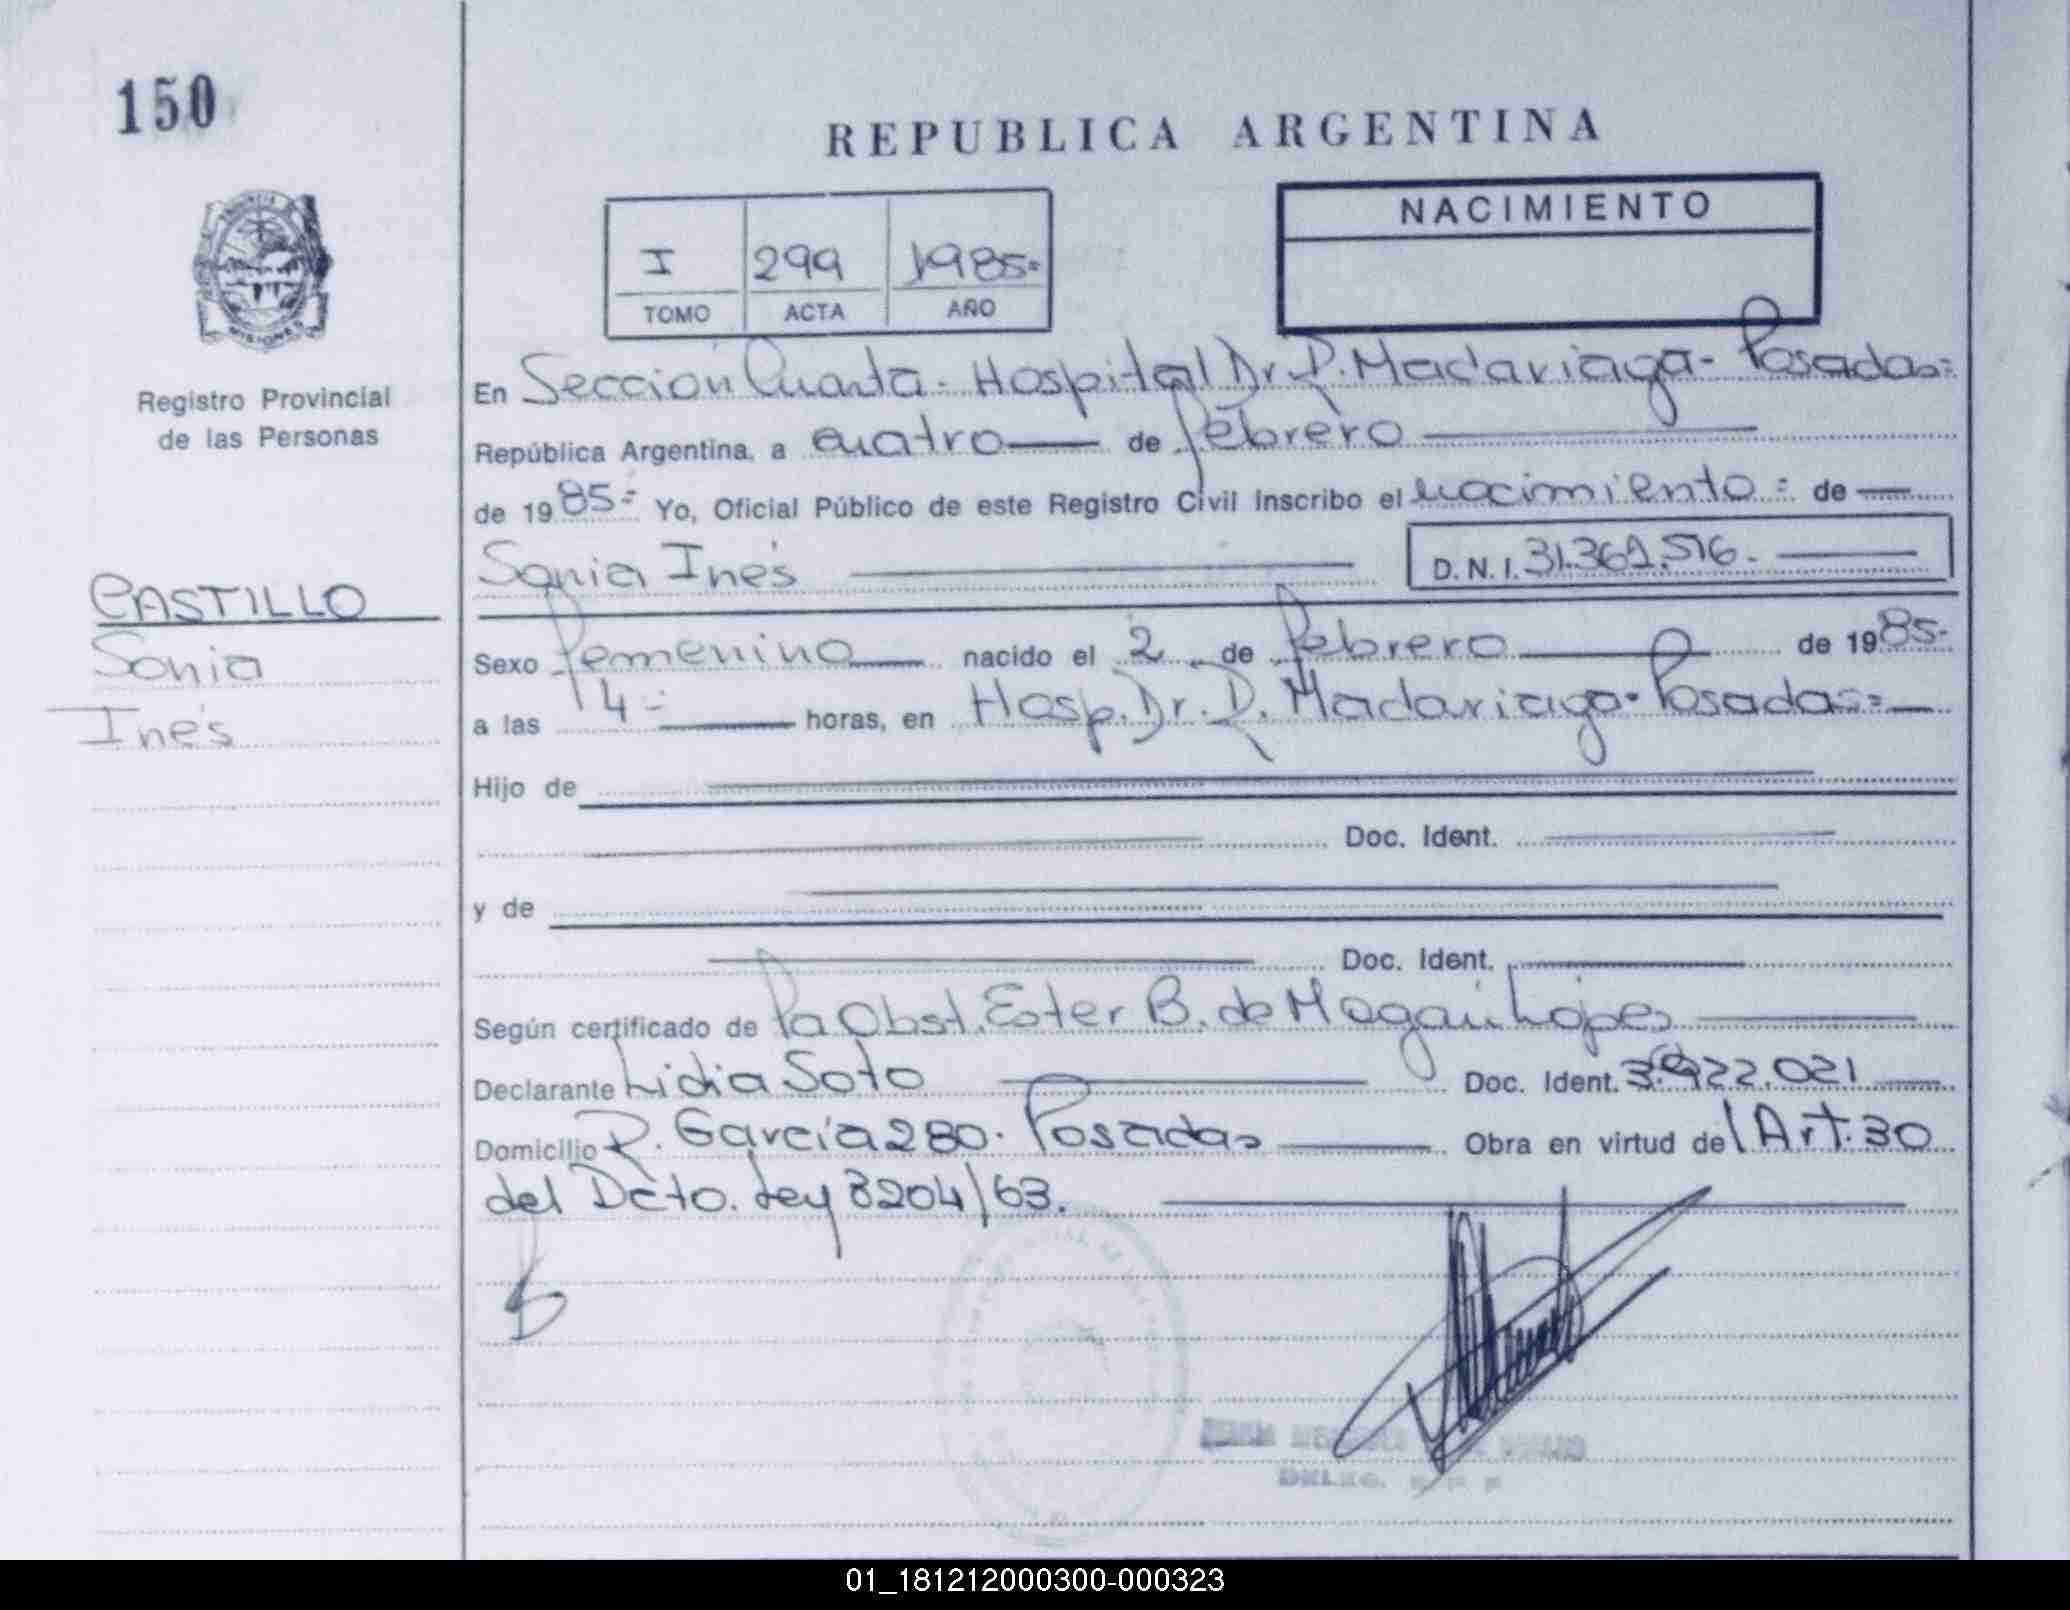 150
REPUBLICA ARGENTINA
I 299 1985=
TOMO ACTA AÑO
NACIMIENTO
MISIONES
Registro Provincial
de las Personas
CASTILLO
Sonia
Inés
En Seccion Cuarta - Hospital Dr. R. Madariaga - Posadas=
República Argentina, a cuatro de febrero
de 1985= Yo, Oficial Público de este Registro Civil Inscribo el nacimiento = de
Sonia Inés D.N.I. 31.361.516.
Sexo femenino nacido el 2 de febrero de 1985-
a las 14= horas, en Hosp. Dr. R. Madariaga - Posadas=
Hijo de
Doc. Ident.
y de
Doc. Ident.
Según certificado de la Obst. Ester B. de
Declarante Lidia Soto Doc. Ident. 922.021
Domicilio R. García 280. Posadas Obra en virtud del Art. 30
del Dcto. Ley 8204/63.
01_181212000300-000323